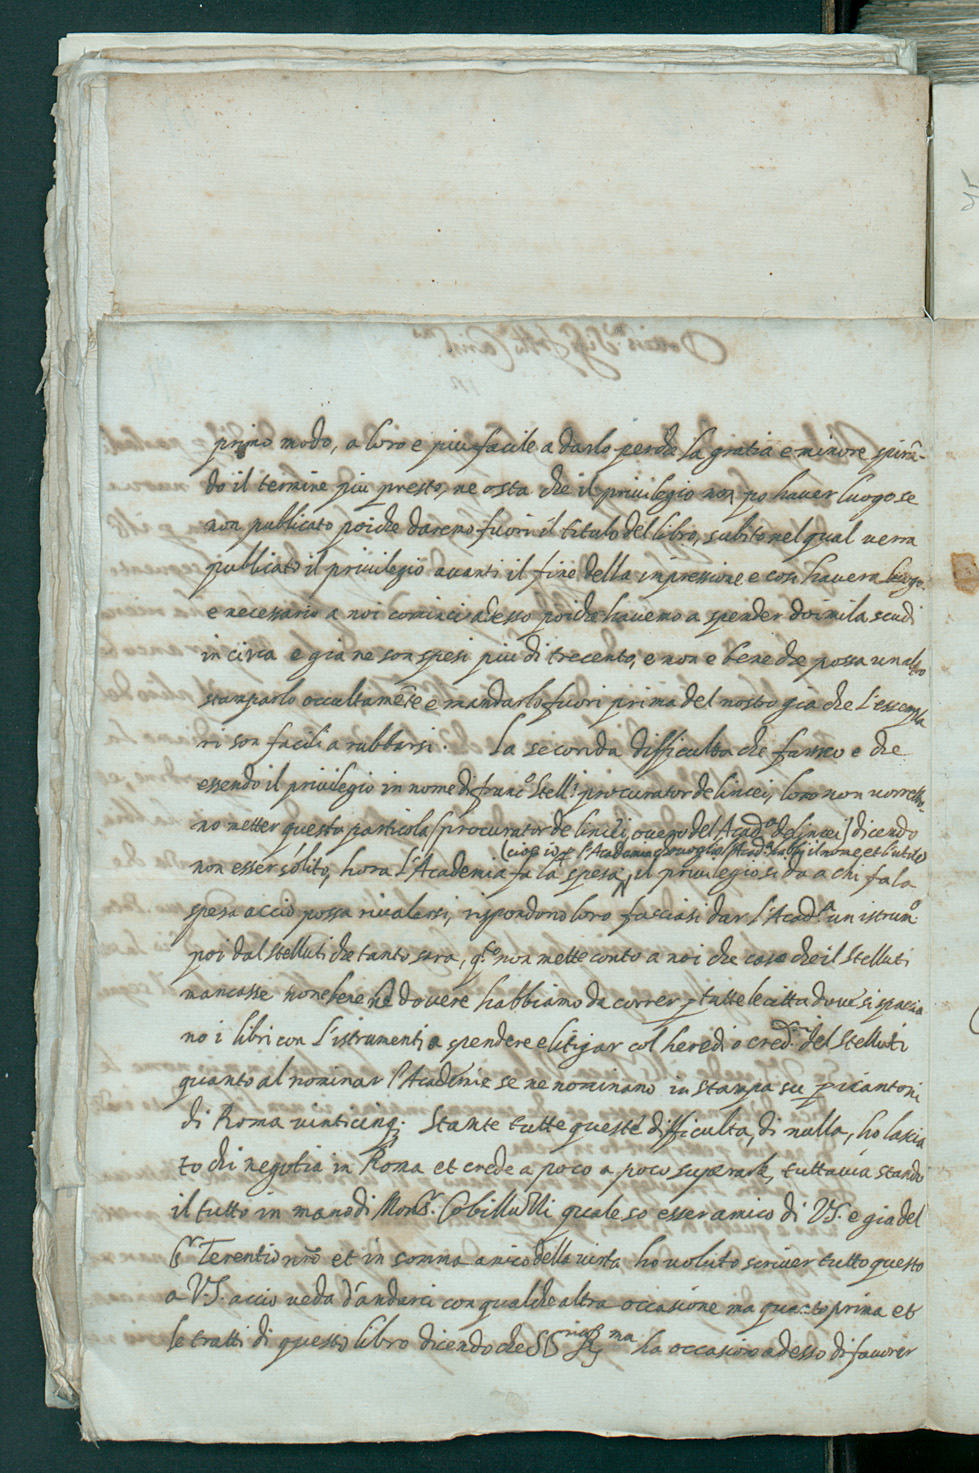 primo modo, a loro e piu facile a darlo perche la gratia e minore spirã-
do il termine piu presto, ne osta che il privilegio non po haver luogo se
non publicato poiche daremo fuori il titulo del libro, subito nel qual verra
publicato il privilegio avanti il fine della impressione e cosi havera luogo.
e necessario a noi cominci adesso poiche havemo a spender doi mila scudi
in circa e gia ne son spesi piu di trecento, e non e bene che possa un altro
stamparlo occultamẽte e mandarlo fuori prima del nostro gia che l'essempla
ri son facili a rubbarsi. La seconda difficulta che fanno e che
essendo il privilegio in nome di franc.o Stell.i procurator de lincei, loro non vorrebbe-
no metter questa particola (procurator de lincei, overo del Acad.a de lincei) dicendo
(cioe io p l'Academia, e voglio l'Acad.a habbi il nome et l'utile)
non esser solito, hora l'Academia fa la spesa il privilegio si da a chi fa la
spesa accio possa rivalersi, rispondono loro facciasi dar l'Acad.a un istrum.o
poi dal Stelluti che tanto sara, q.to non mette conto a noi che caso che il Stelluti
mancasse non e bene ne dovere habbiamo da correr p tutte le citta dove si spaccia
no i libri con l'istrumenti a spendere e litigar col heredi o cred.ri del Stelluti
quanto al nominar l'Academie se ne nominano in stampa su p i cantoni
di Roma vinticinq;. Stante tutte queste difficulta, di nulla, ho lascia
to chi negotia in Roma et crede a poco a poco superarle, tuttavia stando
il tutto in mano di Mons.r Cobilluzzi quale so esser amico di V.S. e gia del
S.r Terentio nr̃o et in somma amico della virtu ho voluto scriver tutto questo
a V.S. accio veda d'andarci con qualche altra occasione ma quanto prima et
le tratti di questo libro dicendo che S.S. Ill.ma ha occasione adesso di favorir